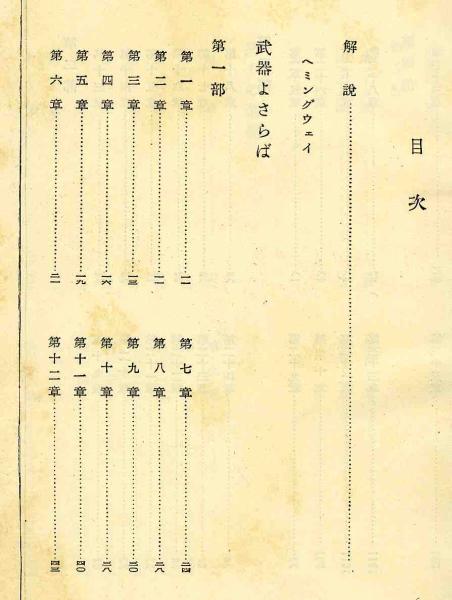 目次
解說
ヘミングウェイ
武器よさらば
第一部
第一章……一一
第二章……一一
第三章……一三
第四章……一六
第五章……一九
第六章……二一
第七章……二四
第八章……二八
第九章……三〇
第十章……三八
第十一章……四〇
第十二章……四三